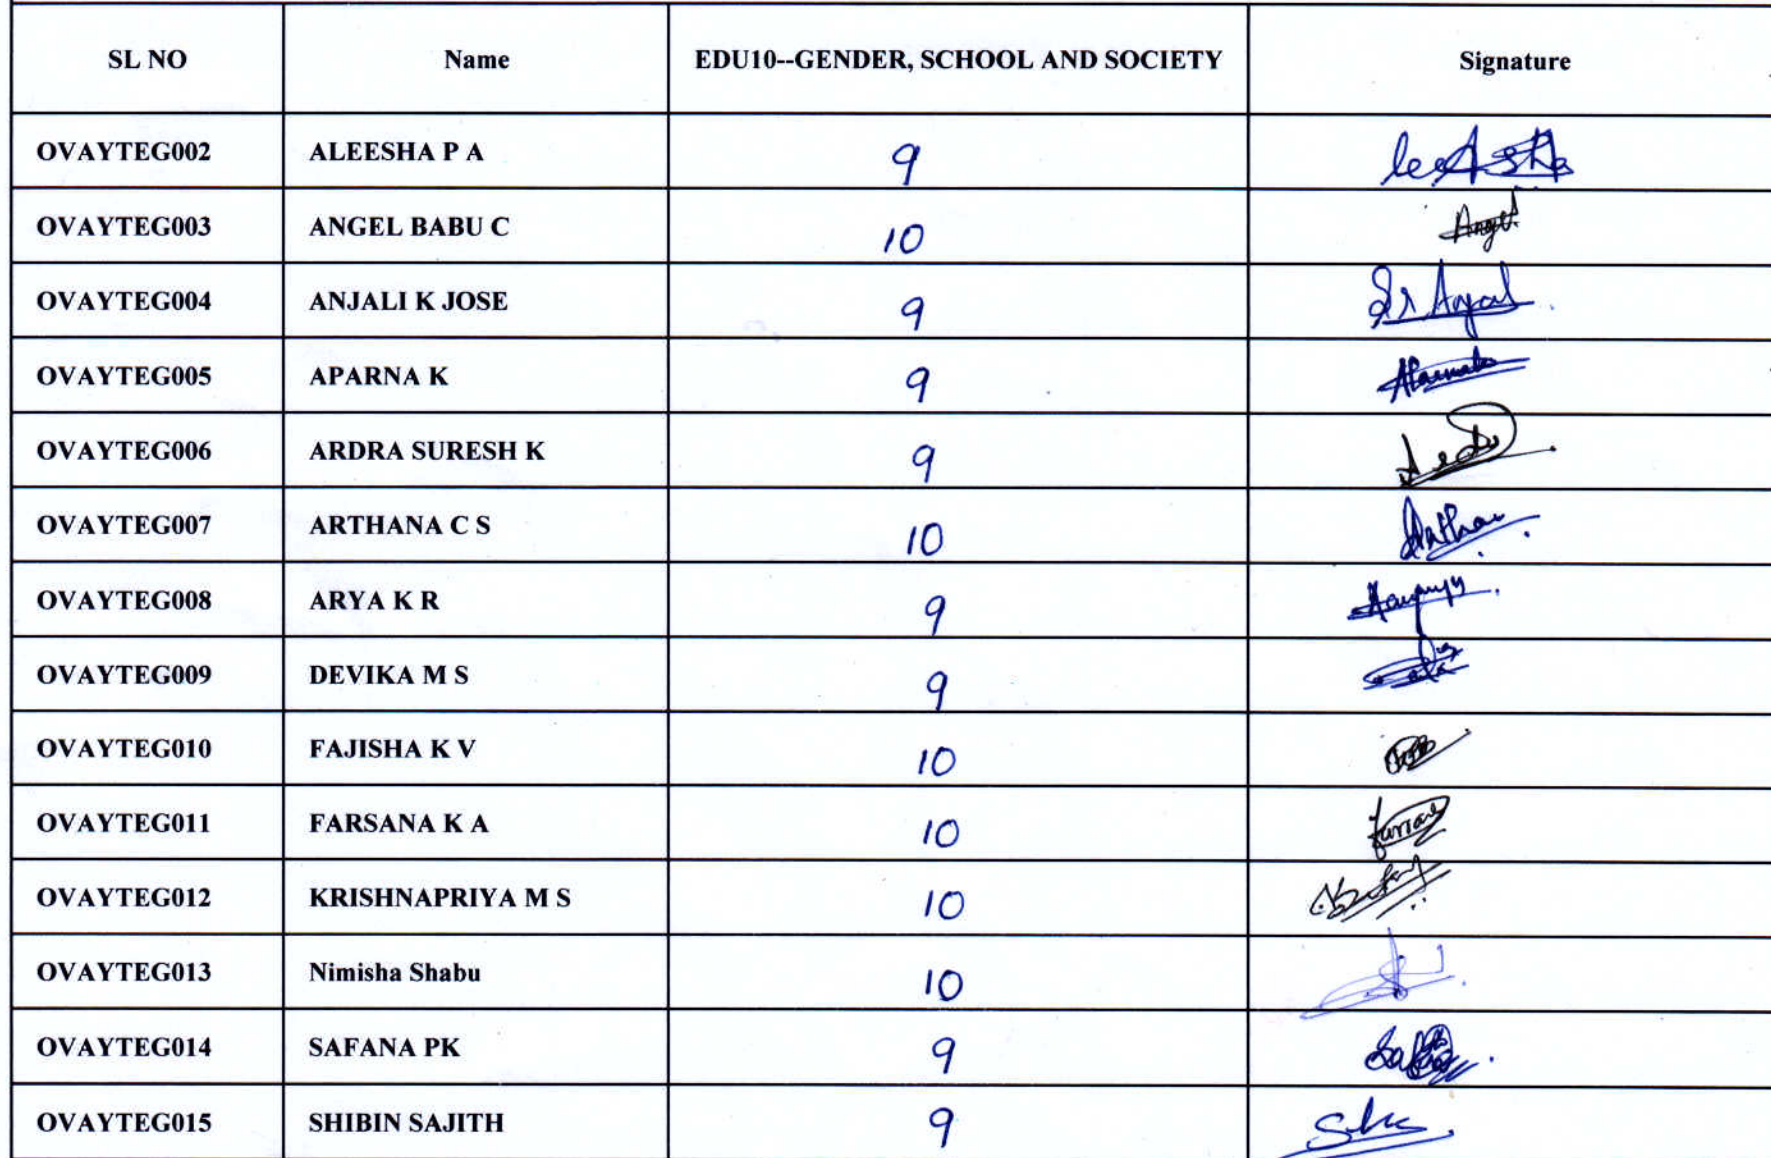 SL NO Name EDU10--GENDER, SCHOOL AND SOCIETY Signature
OVAYTEG002 ALEESHA P A 9
OVAYTEG003 ANGEL BABU C 10 Angel
OVAYTEG004 ANJALI K JOSE 9
OVAYTEG005 APARNA K 9
OVAYTEG006 ARDRA SURESH K 9
OVAYTEG007 ARTHANA C S 10
OVAYTEG008 ARYA K R 9
OVAYTEG009 DEVIKA M S 9
OVAYTEG010 FAJISHA K V 10
OVAYTEG011 FARSANA K A 10
OVAYTEG012 KRISHNAPRIYA M S 10
OVAYTEG013 Nimisha Shabu 10
OVAYTEG014 SAFANA PK 9
OVAYTEG015 SHIBIN SAJITH 9